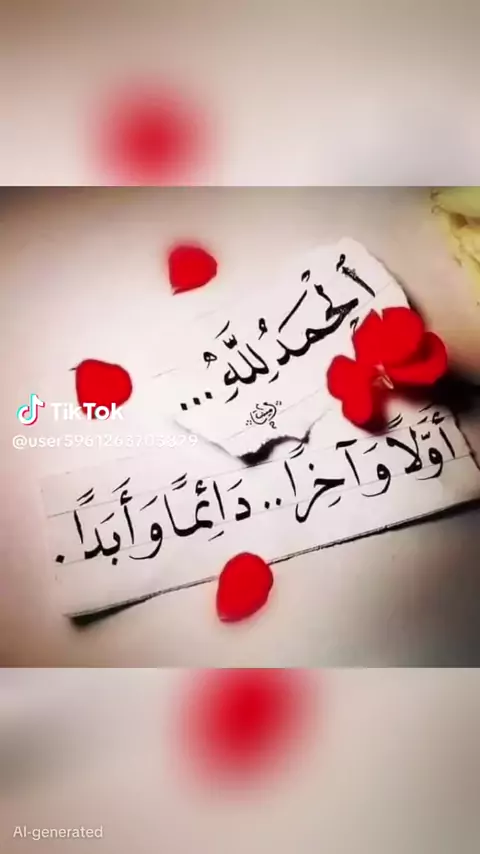 اَلْحَمَدُ لِلَّهِ...
أَوَّلاً وَآخِراً.. دَائِمًا وَأَبَداً.
TikTok
@user5961263703829
AI-generated